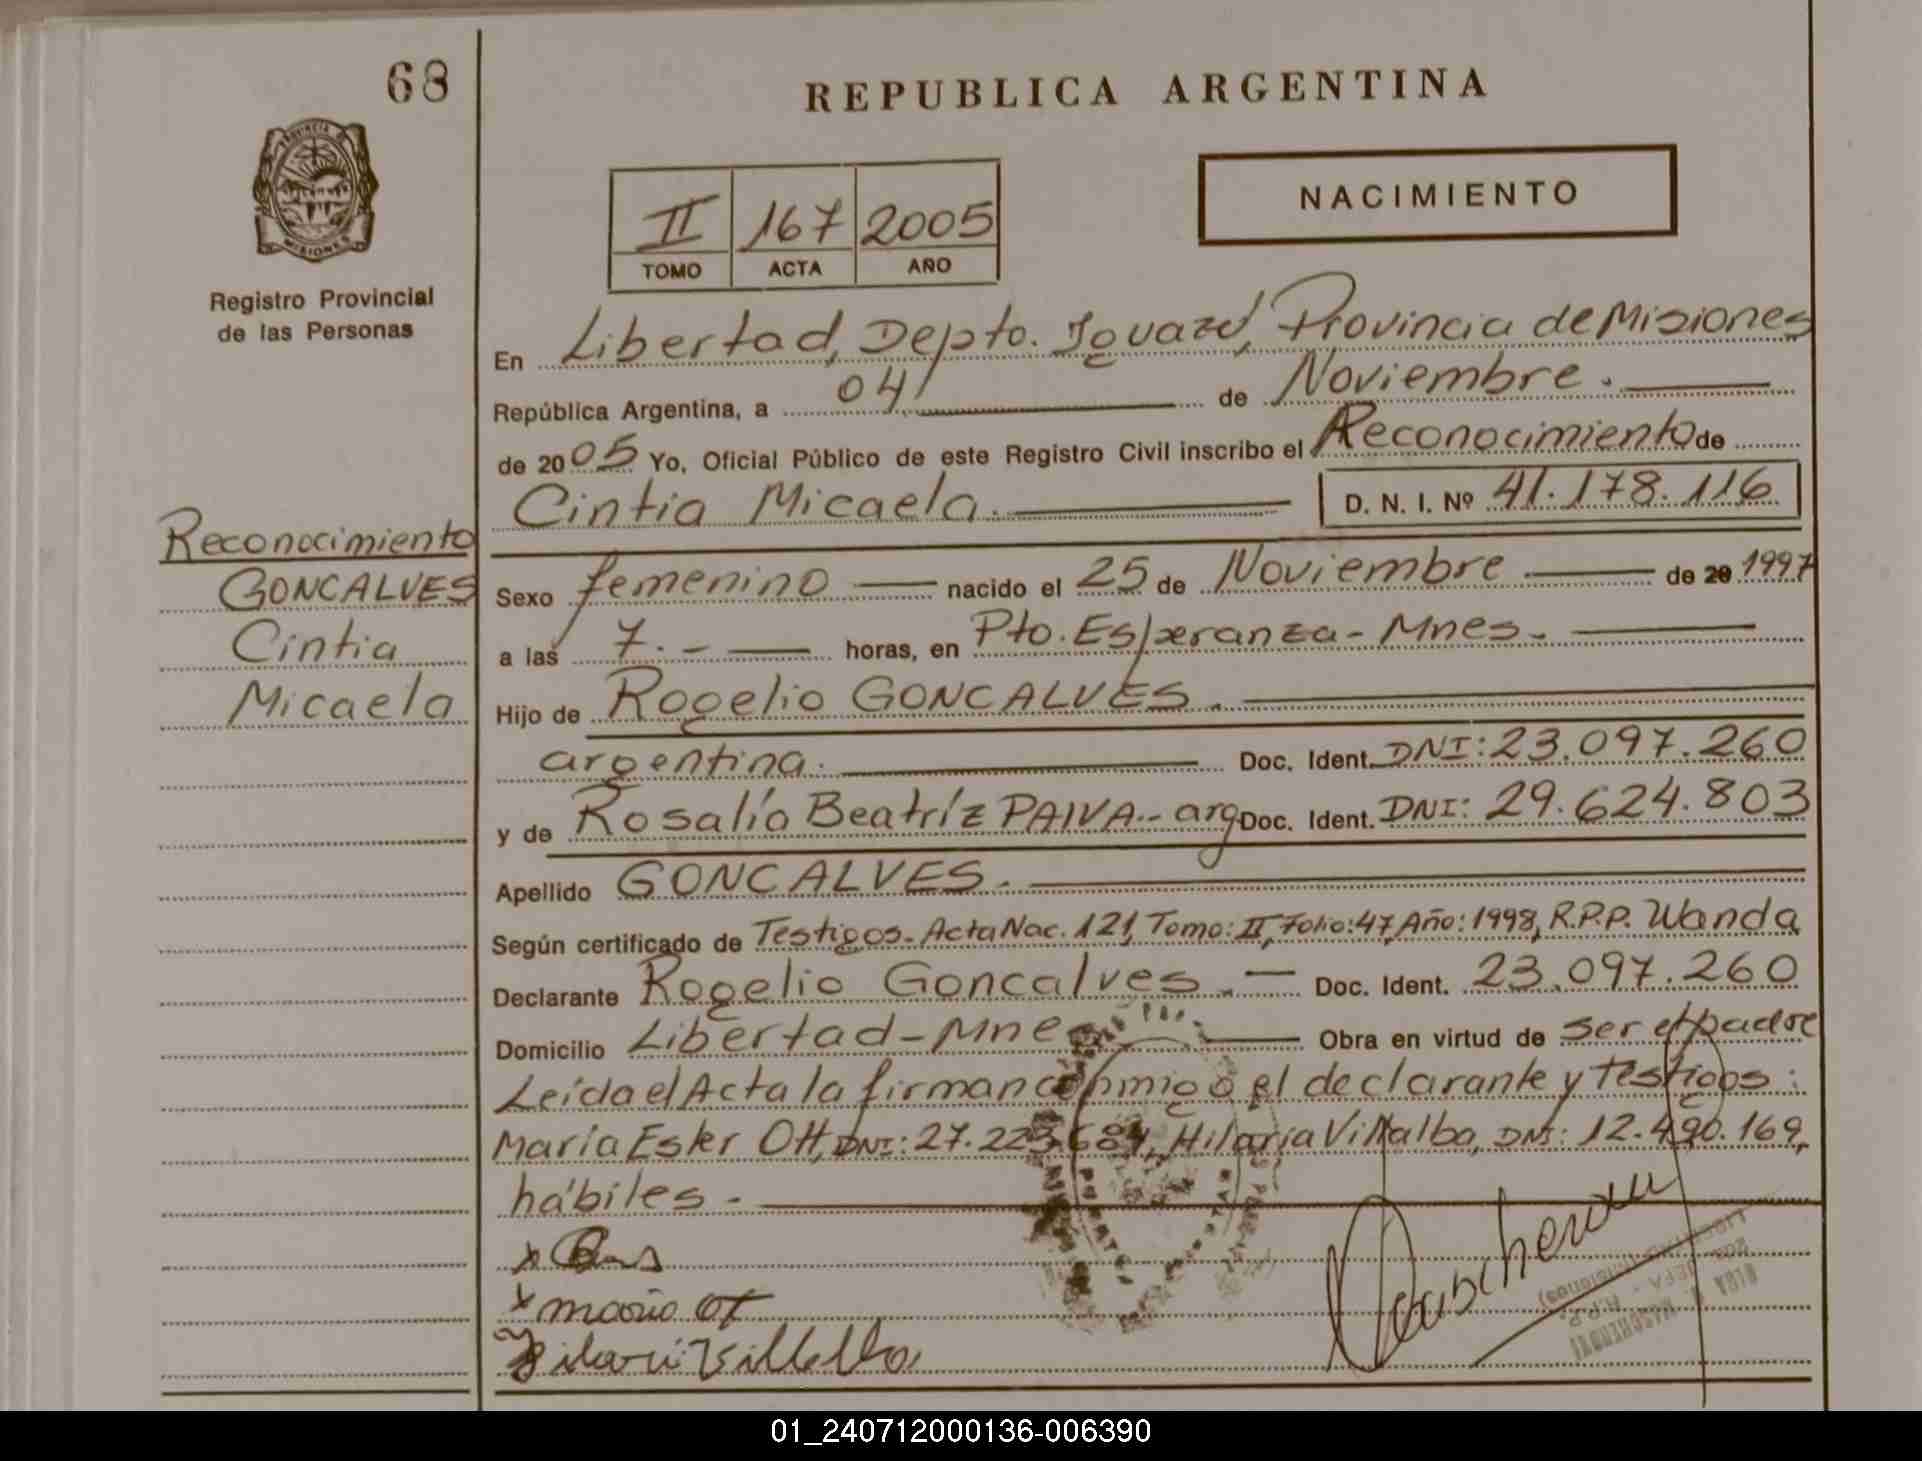 68
REPUBLICA ARGENTINA
PROVINCIA DE
MISIONES
Registro Provincial
de las Personas
II 167 2005
TOMO ACTA AÑO
NACIMIENTO
En Libertad, Depto. Iguazú, Provincia de Misiones
República Argentina, a 04 de Noviembre.
de 2005 Yo, Oficial Público de este Registro Civil inscribo el Reconocimiento de
Cintia Micaela. D. N. I. Nº 41.178.116
Reconocimiento
GONCALVES
Cintia
Micaela
Sexo femenino nacido el 25 de Noviembre de 20 1997
a las 7.- horas, en Pto. Esperanza - Mnes.
Hijo de Rogelio GONCALVES.
argentina. Doc. Ident. DNI: 23.097.260
y de Rosalía Beatríz PAIVA.- arg Doc. Ident. DNI: 29.624.803
Apellido GONCALVES.
Según certificado de Testigos. Acta Nac. 121, Tomo: II, Folio: 47, Año: 1998, R.P.P. Wanda
Declarante Rogelio Goncalves. Doc. Ident. 23.097.260
Domicilio Libertad - Mnes Obra en virtud de ser el padre
Leída el Acta la firman conmigo el declarante y testigos:
María Ester Ott, DNI: 27.223.684, Hilaria Villalba, DNI: 12.490.169,
hábiles -
x
x maria ot
Hilari Villalba
01_240712000136-006390